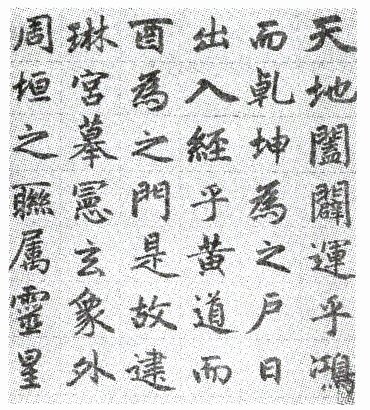 天地闔闢運乎鴻
而乹坤為之户日
出入經乎黄道而
酉為之門是故建
琳宮摹憲玄象外
周垣之聮属靈星